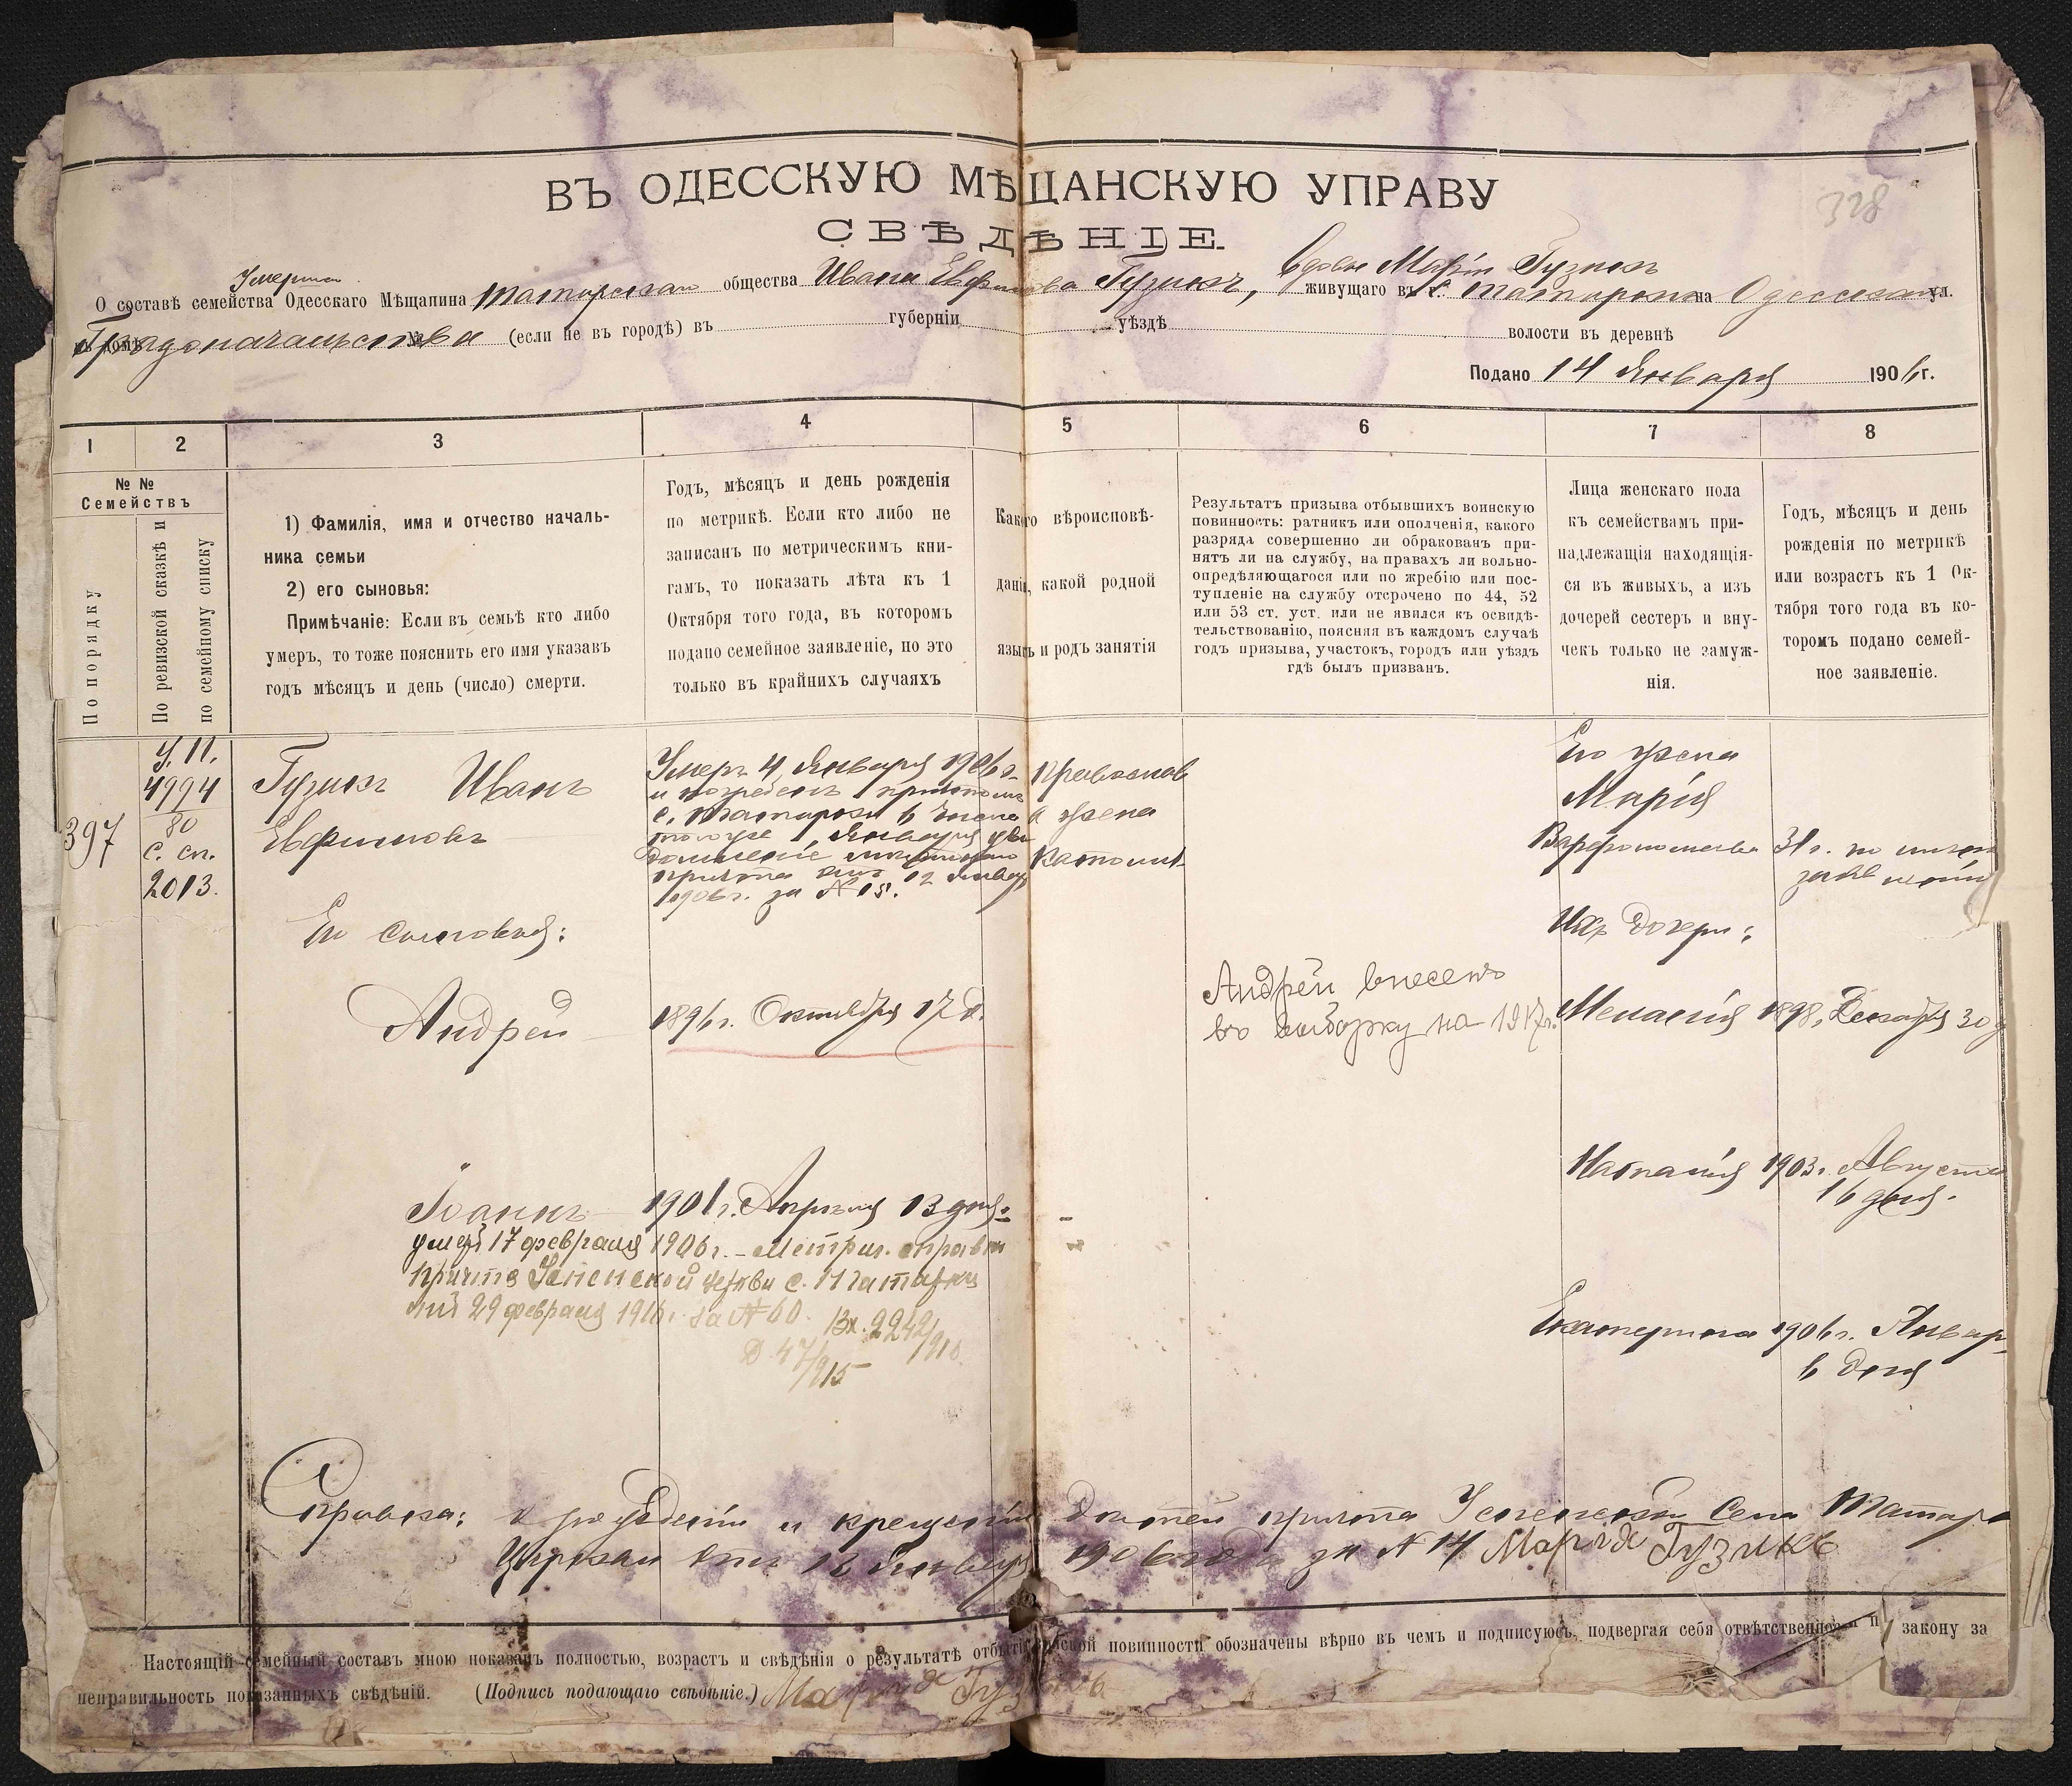 328
ВЪ ОДЕССКУЮ МѢЩАНСКУЮ УПРАВУ
СВѢДѢНІЕ.
Умершаго
вдовы Маріи Гузикъ
О составѣ семейства Одесскаго Мѣщанина Татарскаго общества Ивана Евфимова Гузикъ, живущаго въ с. Татаркѣ на Одесскаго ул.
Градоначальства № (если не въ городѣ) въ губерніи уѣздѣ волости въ деревнѣ
Подано 14 Января 1906 г.
1 2 3 4 5 6 7 8
№ №
Семействъ
По порядку
По ревизской сказкѣ и
по семейному списку
1) Фамилія, имя и отчество началь-
ника семьи
2) его сыновья:
Примѣчаніе: Если въ семьѣ кто либо
умеръ, то тоже пояснить его имя указавъ
годъ мѣсяцъ и день (число) смерти.
Годъ, мѣсяцъ и день рожденія
по метрикѣ. Если кто либо не
записанъ по метрическимъ кни-
гамъ, то показать лѣта къ 1
Октября того года, въ которомъ
подано семейное заявленіе, но это
только въ крайнихъ случаяхъ
Какого вѣроисповѣ-
данія, какой родной
языкъ и родъ занятія
Результатъ призыва отбывшихъ воинскую
повинность: ратникъ или ополченія, какого
разряда совершенно ли обракованъ при-
нятъ ли на службу, на правахъ ли вольно-
опредѣляющагося или по жребію или пос-
тупленіе на службу отсрочено по 44, 52
или 53 ст. уст. или не явился къ освидѣ-
тельствованію, поясняя въ каждомъ случаѣ
годъ призыва, участокъ, городъ или уѣздъ
гдѣ былъ призванъ.
Лица женскаго пола
къ семействамъ при-
надлежащія находящія-
ся въ живыхъ, а изъ
дочерей сестеръ и вну-
чекъ только не замуж-
нія.
Годъ, мѣсяцъ и день
рожденія по метрикѣ
или возрастъ къ 1 Ок-
тября того года въ ко-
торомъ подано семей-
ное заявленіе.
397
4994
80
с. сп.
2013.
Гузикъ Иванъ
Евфимовъ
Умеръ 4 Января 1906 г.
и погребенъ причтомъ
с. Татарки 6 числа
того же Января
причта отъ 12 Январ
1906 г. за № 15.
Православ
а жена
Католич
Его жена
Марія
Варфоломеева 31 г. по
Его сыновья:
Ихъ дочери:
Андрей 1896 г. Октября 17 д.
Андрей внесенъ
въ выборку на 1917 г.
Меланія 1898, Декабря 30 д
Наталія 1903 г. Августа
16 дня.
Іоаннъ 1901 г. Апрѣля 13 дня.
умеръ 17 февраля 1906 г. – Метрич. справка
Причта Успенской церкви с. Татарки
отъ 29 февраля 1916 г. за № 60. Вх. 2242/916
Д 47/915
Екатерина 1906 г. Январ
6 дня
Справка: о рожденіи и крещеніи дѣтей причта Успенской Села Татарк
Церкви отъ 12 Января 1906 года за № 14 Марія Гузикъ
Настоящій семейный составъ мною показанъ полностью, возрастъ и свѣдѣнія о результатѣ отбытія воинской повинности обозначены вѣрно въ чемъ и подписуюсь, подвергая себя отвѣтственности п закону за
неправильность показанныхъ свѣдѣній. (Подпись подающаго свѣдѣніе.) Марія Гузикъ